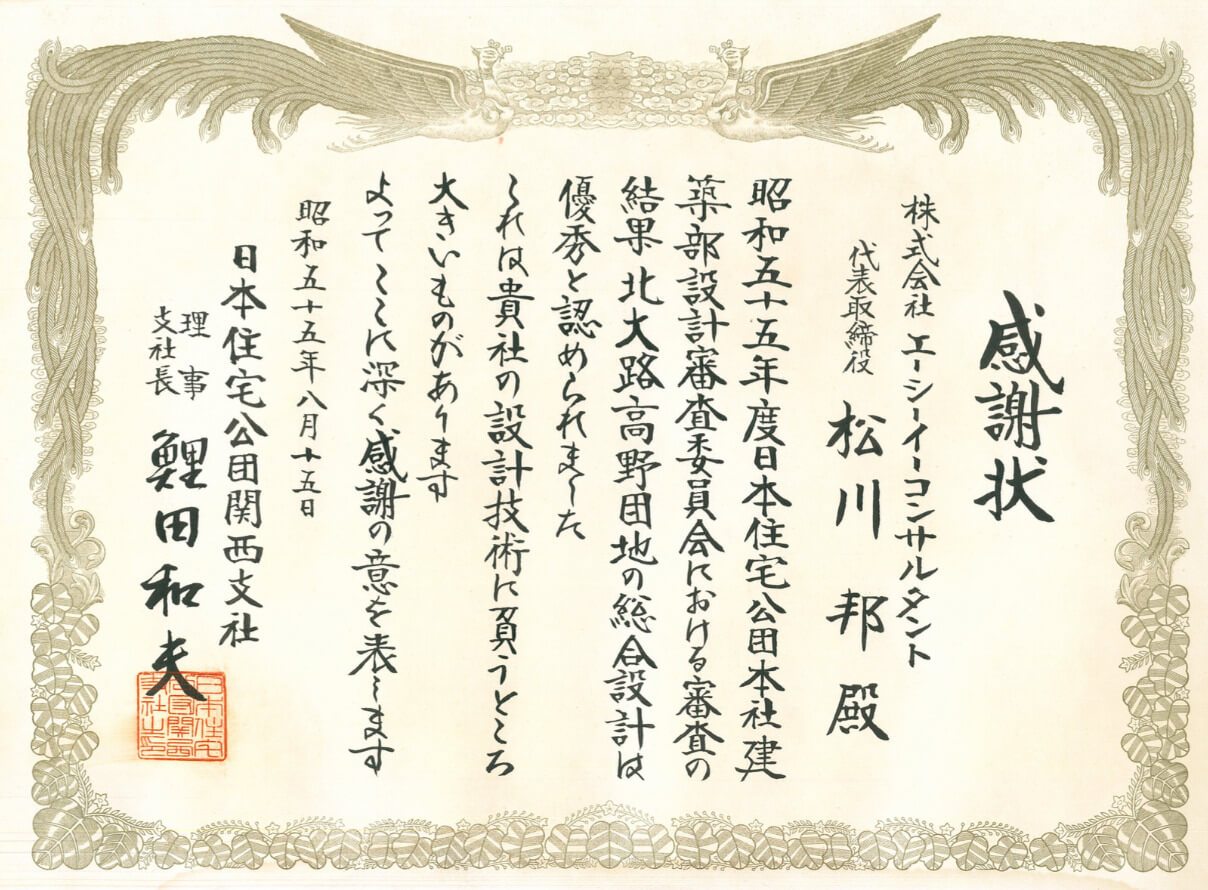 感謝状
株式会社 エーシーイーコンサルタント
代表取締役 松川邦殿
昭和五十五年度日本住宅公団本社建
築部設計審査委員会における審査の
結果北大路高野団地の総合設計は
優秀と認められました
これは貴社の設計技術に負うところ
大きいものがあります
よってここに深く感謝の意を表します
昭和五十五年八月十五日
日本住宅公団関西支社
理事
支社長
鯉田和夫
日本住宅
公団関西
支社之印